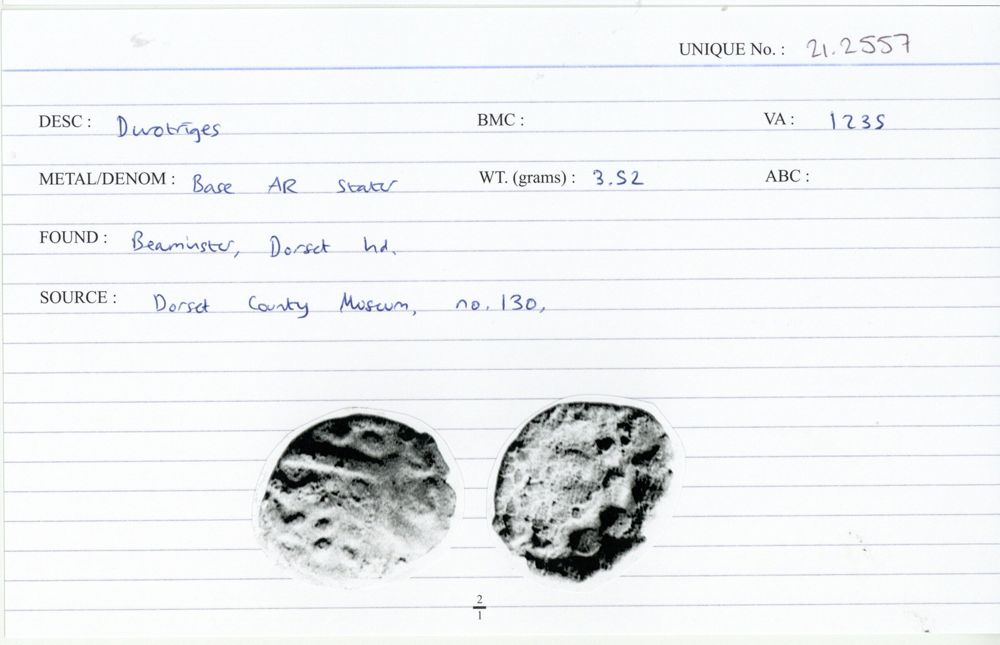 UNIQUE No. : 21.2557
DESC : Durotriges BMC : VA : 1235
METAL/DENOM : Base AR Stater WT. (grams) : 3.52 ABC :
FOUND : Beaminster, Dorset hd.
SOURCE : Dorset County Museum, no. 130,
2
1